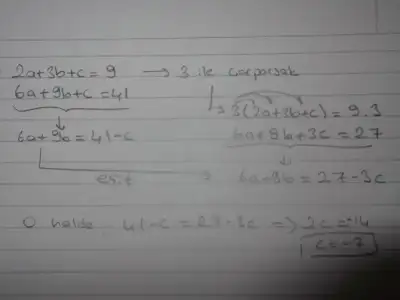 2a+3b+c=9 → 3 ile çarparsak
6a+9b+c=41
3(2a+3b+c)=9.3
6a+9b+3c=27
6a+9b=41-c
eşit
6a+9b=27-3c
O halde 41-c=27-3c ⇒ 2c=-14
c=-7